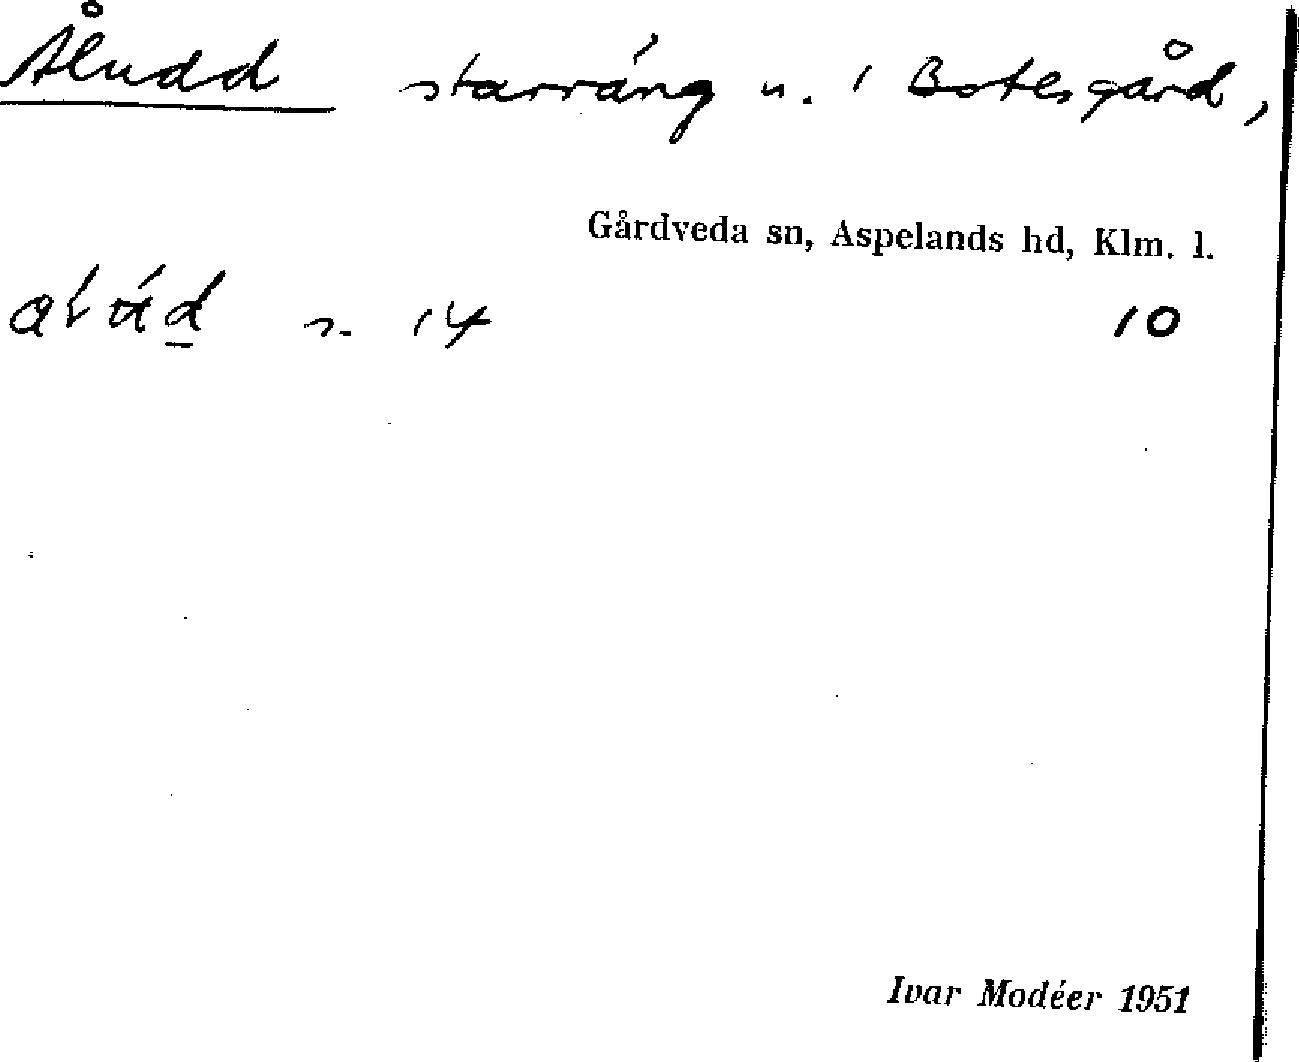 Åludd starräng n. 1 Botesgård,
Gårdveda sn, Aspelands hd, Klm. l.
n. 14 10
Ivar Modéer 1951